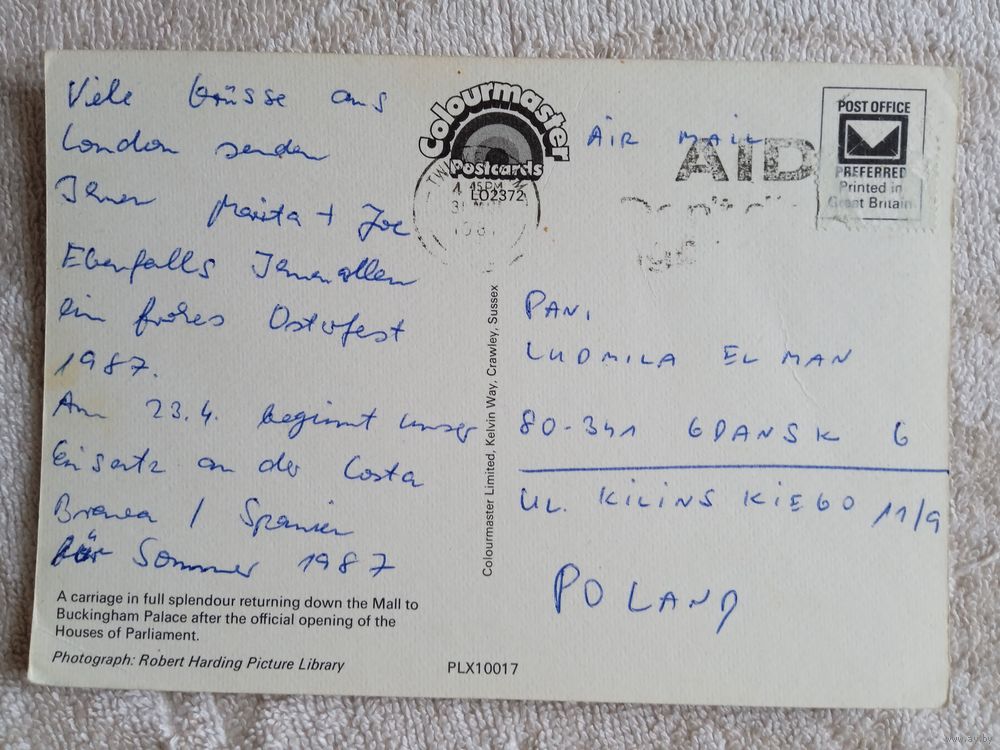 Viele Grüsse aus
London senden
Ihnen Marita + Joe
Ebenfalls Ihnen allen
ein frohes Osterfest
1987.
Am 23.4. beginnt unser
Einsatz an der Costa
Branca / Spanien
für Sommer 1987
A carriage in full splendour returning down the Mall to
Buckingham Palace after the official opening of the
Houses of Parliament.
Photograph: Robert Harding Picture Library
PLX10017
Colourmaster
Postcards
LO2372
4 15PM
Colourmaster Limited, Kelvin Way, Crawley, Sussex
AIR MAIL
AID
POST OFFICE
PREFERRED
Printed in
Great Britain
PANI
LUDMILA ELMAN
80-341 GDANSK 6
UL. KILINSKIEGO 11/9
POLAND
www.ay.by